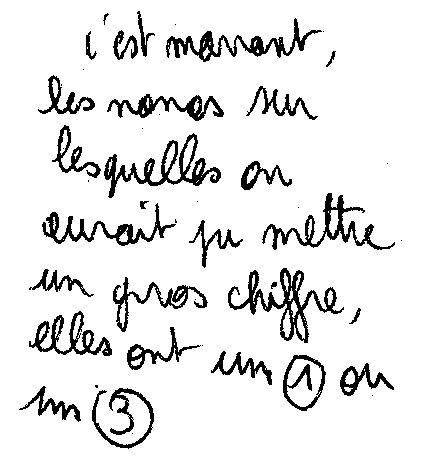 c'est marrant,
les nonos sur
lesquelles on
aurait pu mettre
un gros chiffre,
elles ont un 1 ou
un 3